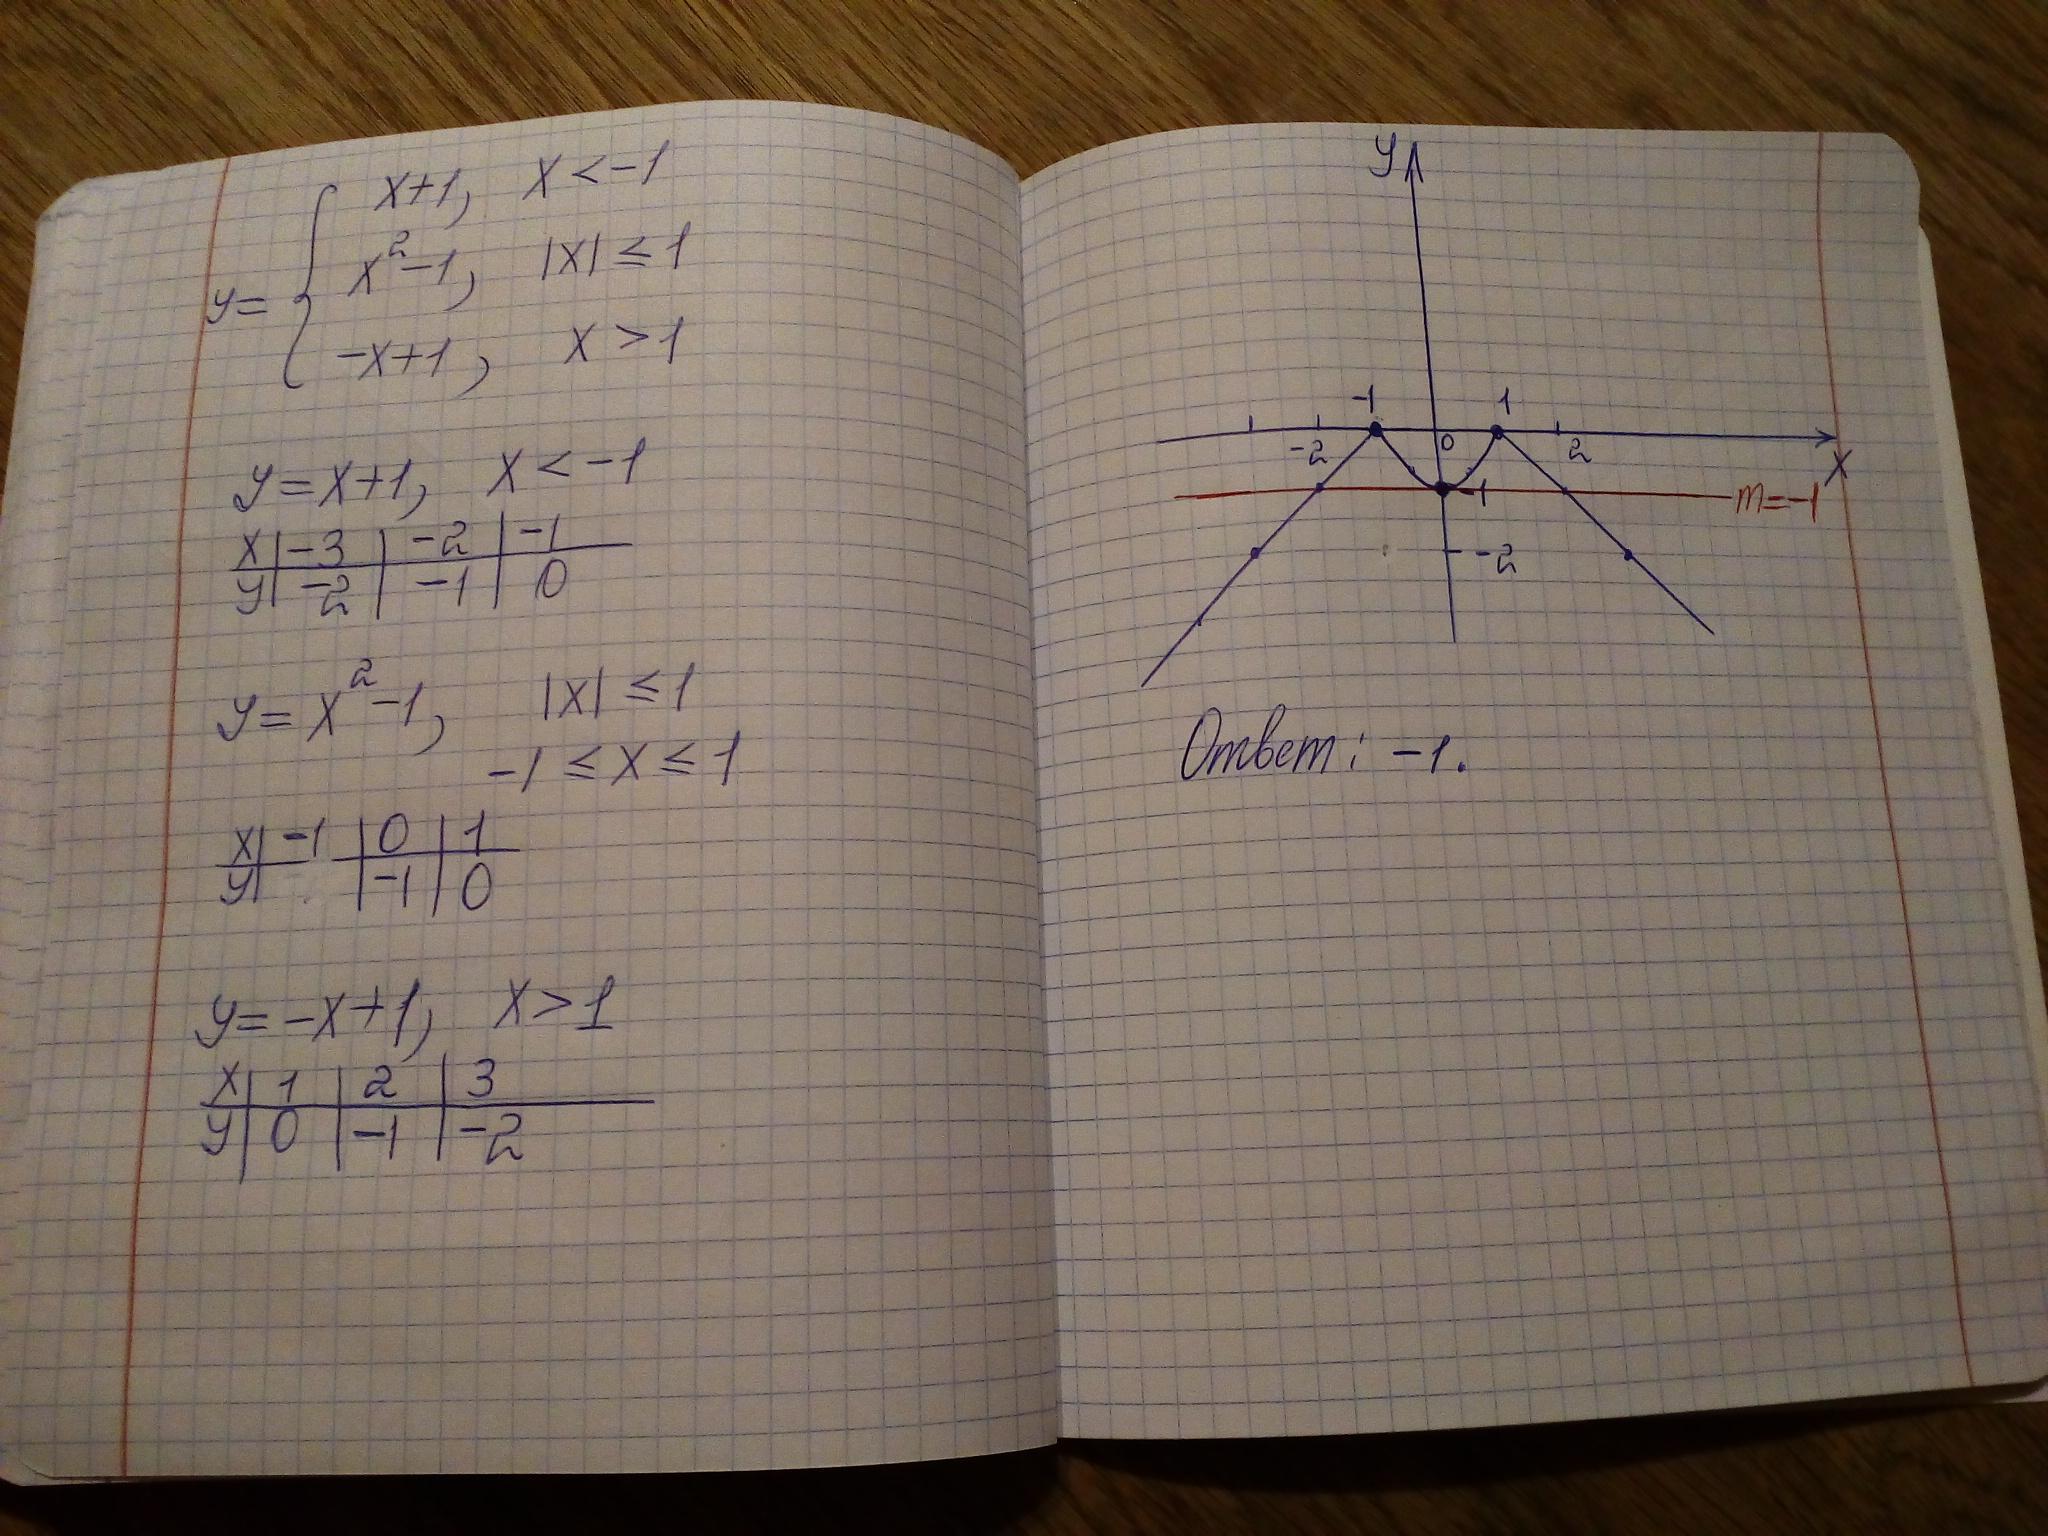 y = { x+1, x < -1
x²-1, |x| ≤ 1
-x+1, x > 1
y = x+1, x < -1
x | -3 | -2 | -1
y | -2 | -1 | 0
y = x²-1, |x| ≤ 1
-1 ≤ x ≤ 1
x | -1 | 0 | 1
y | | -1 | 0
y = -x+1, x > 1
x | 1 | 2 | 3
y | 0 | -1 | -2
y
-1 1
-2 0 2
x
-1 m=-1
-2
Ответ: -1.